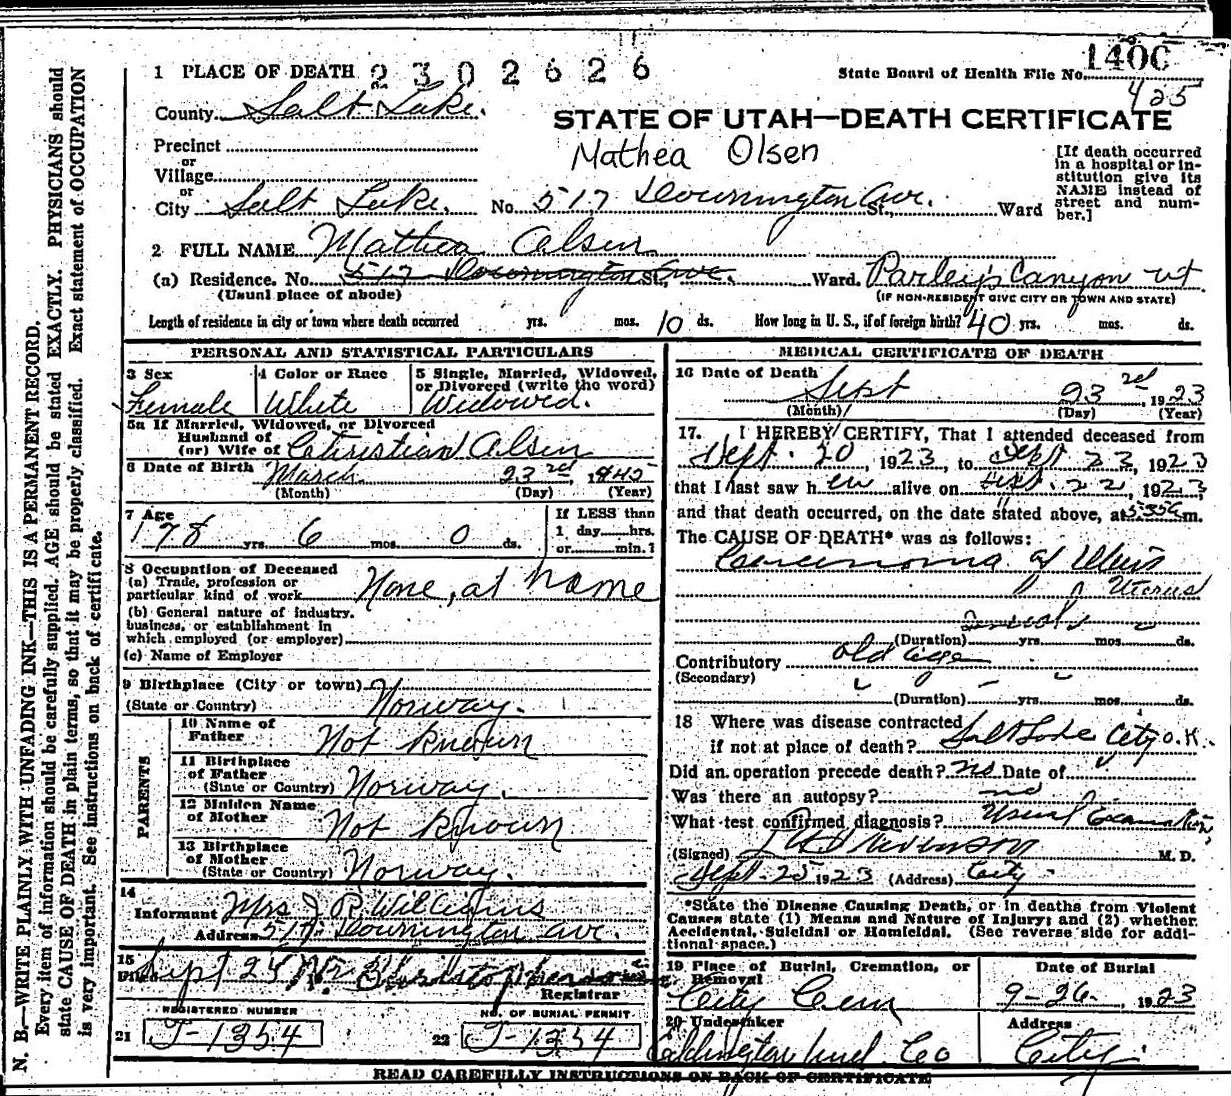 1400
1 PLACE OF DEATH 2302626
State Board of Health File No.
425
County Salt Lake.
STATE OF UTAH—DEATH CERTIFICATE
Precinct
Mathea Olsen
or
Village
or
City Salt Lake. No. 517 Downington Ave. St., Ward
[If death occurred
in a hospital or in-
stitution give its
NAME instead of
street and num-
ber.]
2 FULL NAME Mathea Olsen
(a) Residence. No. 517 Downington St., Ave. Ward. Parley's Canyon Ut
(Usual place of abode)
(IF NON-RESIDENT GIVE CITY OR TOWN AND STATE)
Length of residence in city or town where death occurred yrs. mos. 10 ds. How long in U. S., if of foreign birth? 40 yrs. mos. ds.
PERSONAL AND STATISTICAL PARTICULARS
3 Sex
Female
4 Color or Race
White
5 Single, Married, Widowed,
or Divorced (write the word)
Widowed.
5a If Married, Widowed, or Divorced
Husband of
(or) Wife of Christian Olsen
6 Date of Birth March 23rd, 1845
(Month) (Day) (Year)
7 Age
78 yrs. 6 mos. 0 ds.
If LESS than
1 day hrs.
or min.?
8 Occupation of Deceased
(a) Trade, profession or
particular kind of work None, at home
(b) General nature of industry.
business, or establishment in
which employed (or employer)
(c) Name of Employer
9 Birthplace (City or town)
(State or Country) Norway.
PARENTS
10 Name of
Father Not known
11 Birthplace
of Father
(State or Country) Norway.
12 Maiden Name
of Mother Not known
13 Birthplace
of Mother
(State or Country) Norway.
14
Informant Mrs J. R. Wilkins
Address 517 Downington ave.
15
Filed Sept 25
Registrar
REGISTERED NUMBER
21 J-1354
NO. OF BURIAL PERMIT
22 J-1354
MEDICAL CERTIFICATE OF DEATH
16 Date of Death
Sept 23rd, 1923
(Month) (Day) (Year)
17. I HEREBY CERTIFY, That I attended deceased from
Sept. 20, 1923, to Sept 23, 1923
that I last saw her alive on Sept. 22, 1923,
and that death occurred, on the date stated above, at m.
The CAUSE OF DEATH* was as follows:
Carcinoma of Uterus
Uterus
(Duration) yrs. mos. ds.
Contributory old age
(Secondary)
(Duration) yrs. mos. ds.
18 Where was disease contracted
if not at place of death? Salt Lake City O.K.
Did an operation precede death? no Date of
Was there an autopsy? no
What test confirmed diagnosis? Usual Examination
(Signed) M. D.
Sept. 25 1923 (Address) City
*State the Disease Causing Death, or in deaths from Violent
Causes state (1) Means and Nature of Injury; and (2) whether
Accidental, Suicidal or Homicidal. (See reverse side for addi-
tional space.)
19 Place of Burial, Cremation, or
Removal
City Cem
Date of Burial
9-26-, 1923
20 Undertaker
Und. Co
Address
City
READ CAREFULLY INSTRUCTIONS ON BACK OF CERTIFICATE
N. B.—WRITE PLAINLY WITH UNFADING INK—THIS IS A PERMANENT RECORD.
Every item of information should be carefully supplied. AGE should be stated EXACTLY. PHYSICIANS should
state CAUSE OF DEATH in plain terms, so that it may be properly classified. Exact statement of OCCUPATION
is very important. See instructions on back of certificate.